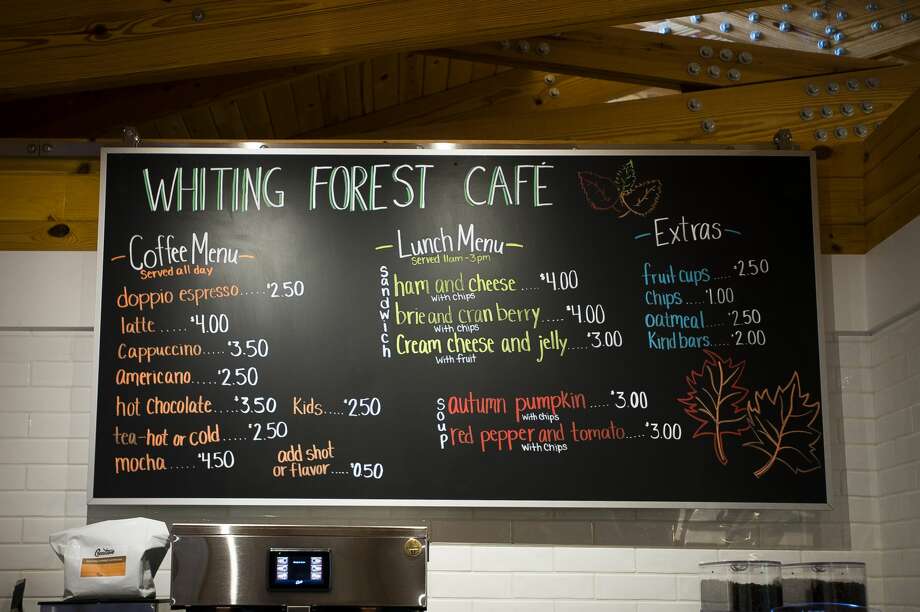 WHITING FOREST CAFÉ
Coffee Menu
Served all day
doppio espresso.....$2.50
latte...$4.00
Cappuccino.....$3.50
americano...$2.50
hot Chocolate...$3.50 Kids..$2.50
tea-hot or cold...$2.50
mocha.....$4.50
add shot
or flavor....$0.50
Lunch Menu
Served 11am-3pm
Sandwich
ham and cheese....$4.00
with chips
brie and cranberry....$4.00
with chips
Cream cheese and jelly....$3.00
with fruit
Soup
autumn pumpkin.....$3.00
with chips
red pepper and tomato....$3.00
with Chips
Extras
fruit cups...$2.50
Chips...$1.00
oatmeal...$2.50
Kind bars...$2.00